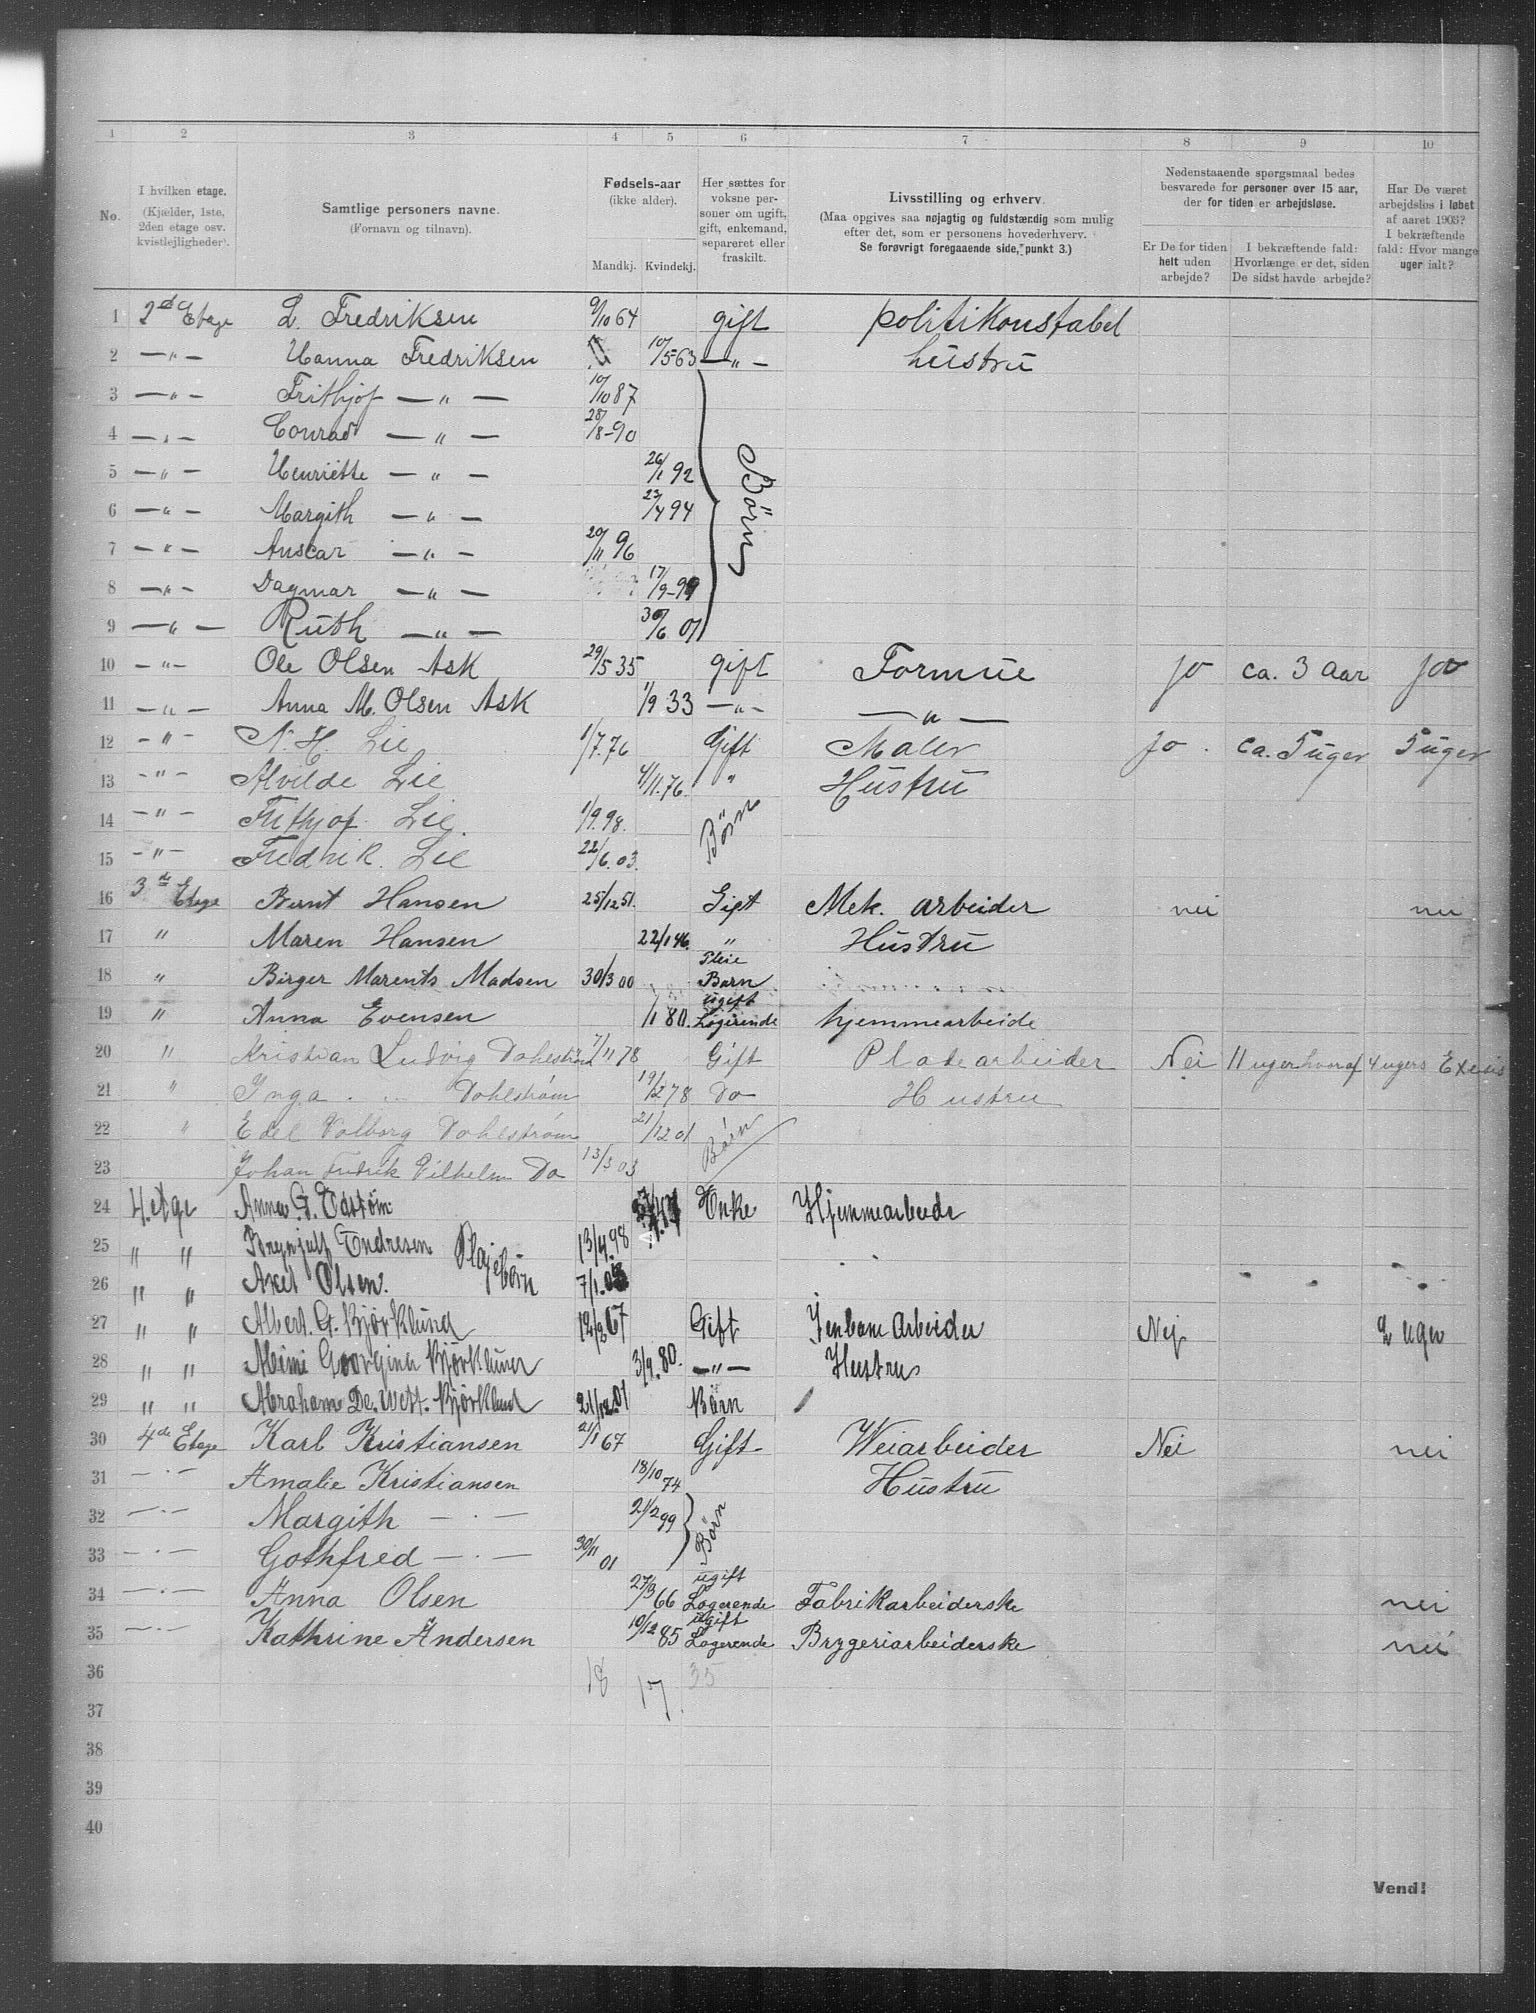 1 2 3 4 5 6 7 8 9 10
No.
I hvilken etage. (Kjælder, 1ste, 2den etage osv. kvistlejligheder).
Samtlige personers navne. (Fornavn og tilnavn).
Fødsels-aar (ikke alder). Mandkj. Kvindekj.
Her sættes for voksne personer om ugift, gift, enkemand, separeret eller fraskilt.
Livsstilling og erhverv. (Maa opgives saa nøjagtig og fuldstændig som mulig efter det, som er personens hovederhverv. Se forøvrigt foregaaende side, punkt 3.)
Nedenstaaende spørgsmaal bedes besvarede for personer over 15 aar, der for tiden er arbejdsløse.
Er De for tiden helt uden arbejde?
I bekræftende fald: Hvorlænge er det, siden De sidst havde arbejde?
Har De været arbejdsløs i løbet af aaret 1903? I bekræftende fald: Hvor mange uger ialt?
1 2d Etage L. Fredriksen 9/10 64 gift politikonstabel
2 — " — Hanna Fredriksen 10/5-63 — " — hustru
3 — " — Frithjof — " — 10/10 87
4 — " — Conrad — " — 28/8-90
5 — " — Henriette — " — 26/1 92 Børn
6 — " — Margith — " — 23/4 94
7 — " — Anscar — " — 20/11 96
8 — " — Dagmar — " — 17/9-99
9 — " — Ruth — " — 30/6 01
10 — " — Ole Olsen Ask 29/5 35 gift Formue jo ca. 3 aar jo
11 — " — Anna M. Olsen Ask 1/9 33 — " — — " —
12 — " — N. H. Lie 1/7.76 Gift Maler Jo. ca. 5 uger 5 uger
13 — " — Alvilde Lie 4/11.76. " Hustru
14 — " — Frithjof Lie. 1/9.98. Børn
15 — " — Fredrik. Lie 22/6.03.
16 3de Etage Bernt Hansen 25/12 51. Gift Mek. arbeider nei nei
17 " Maren Hansen 22/1 46. " Hustru
18 " Birger Marents Madsen 30/3 00 Pleie Barn
19 " Anna Evensen 1/1 80. ugift Logerende hjemmearbeide
20 " Kristian Ludvig Dahlstrøm 7/11 78 Gift Pladearbeider Nei 11 uger hvoraf 4 ugers Exersis
21 " Inga " Dahlstrøm 19/2 78 Do Hustru
22 " Edel Valborg Dahlstrøm 21/12 01 Børn
23 Johan Fredrik Vilhelm Do 13/3 03
24 4. etge Anna G. Edstrøm Enke Hjemmearbeide
25 " " Brynjulf Endresen Plejebørn 13/4.98
26 " " Axel Olsen. 7/1.
27 " " Albert. G. Bjørklund 67 Gift Jenbane Arbeider Nej 2 uger
28 " " Mimi Georgina Bjørklund 3/9.80. — " — Hustru
29 " " Abraham De. Wett. Bjørklund 21/12.01 Børn
30 4de Etage Karl Kristiansen 21/1 67 Gift Weiarbeider Nei nei
31 — " — Amalie Kristiansen 18/10 74 Hustru
32 — " — Margith — " — 21/2 99 Børn
33 — " — Gothfred — " — 30/11 01
34 — " — Anna Olsen 27/3 66 ugift Logerende Fabrikarbeiderske nei
35 — " — Kathrine Andersen 10/12 85 ugift Logerende Bryggeriarbeiderske nei
36 18 17 35
37
38
39
40
Vend!